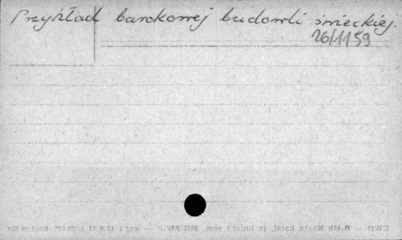 Przykład barokowej budowli świeckiej.
26/1159